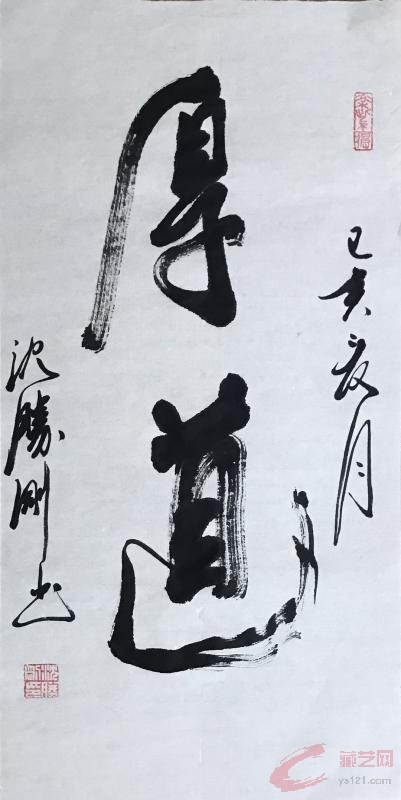 己亥夏月
厚道
沈勝剛书
藏艺网
ys121.com